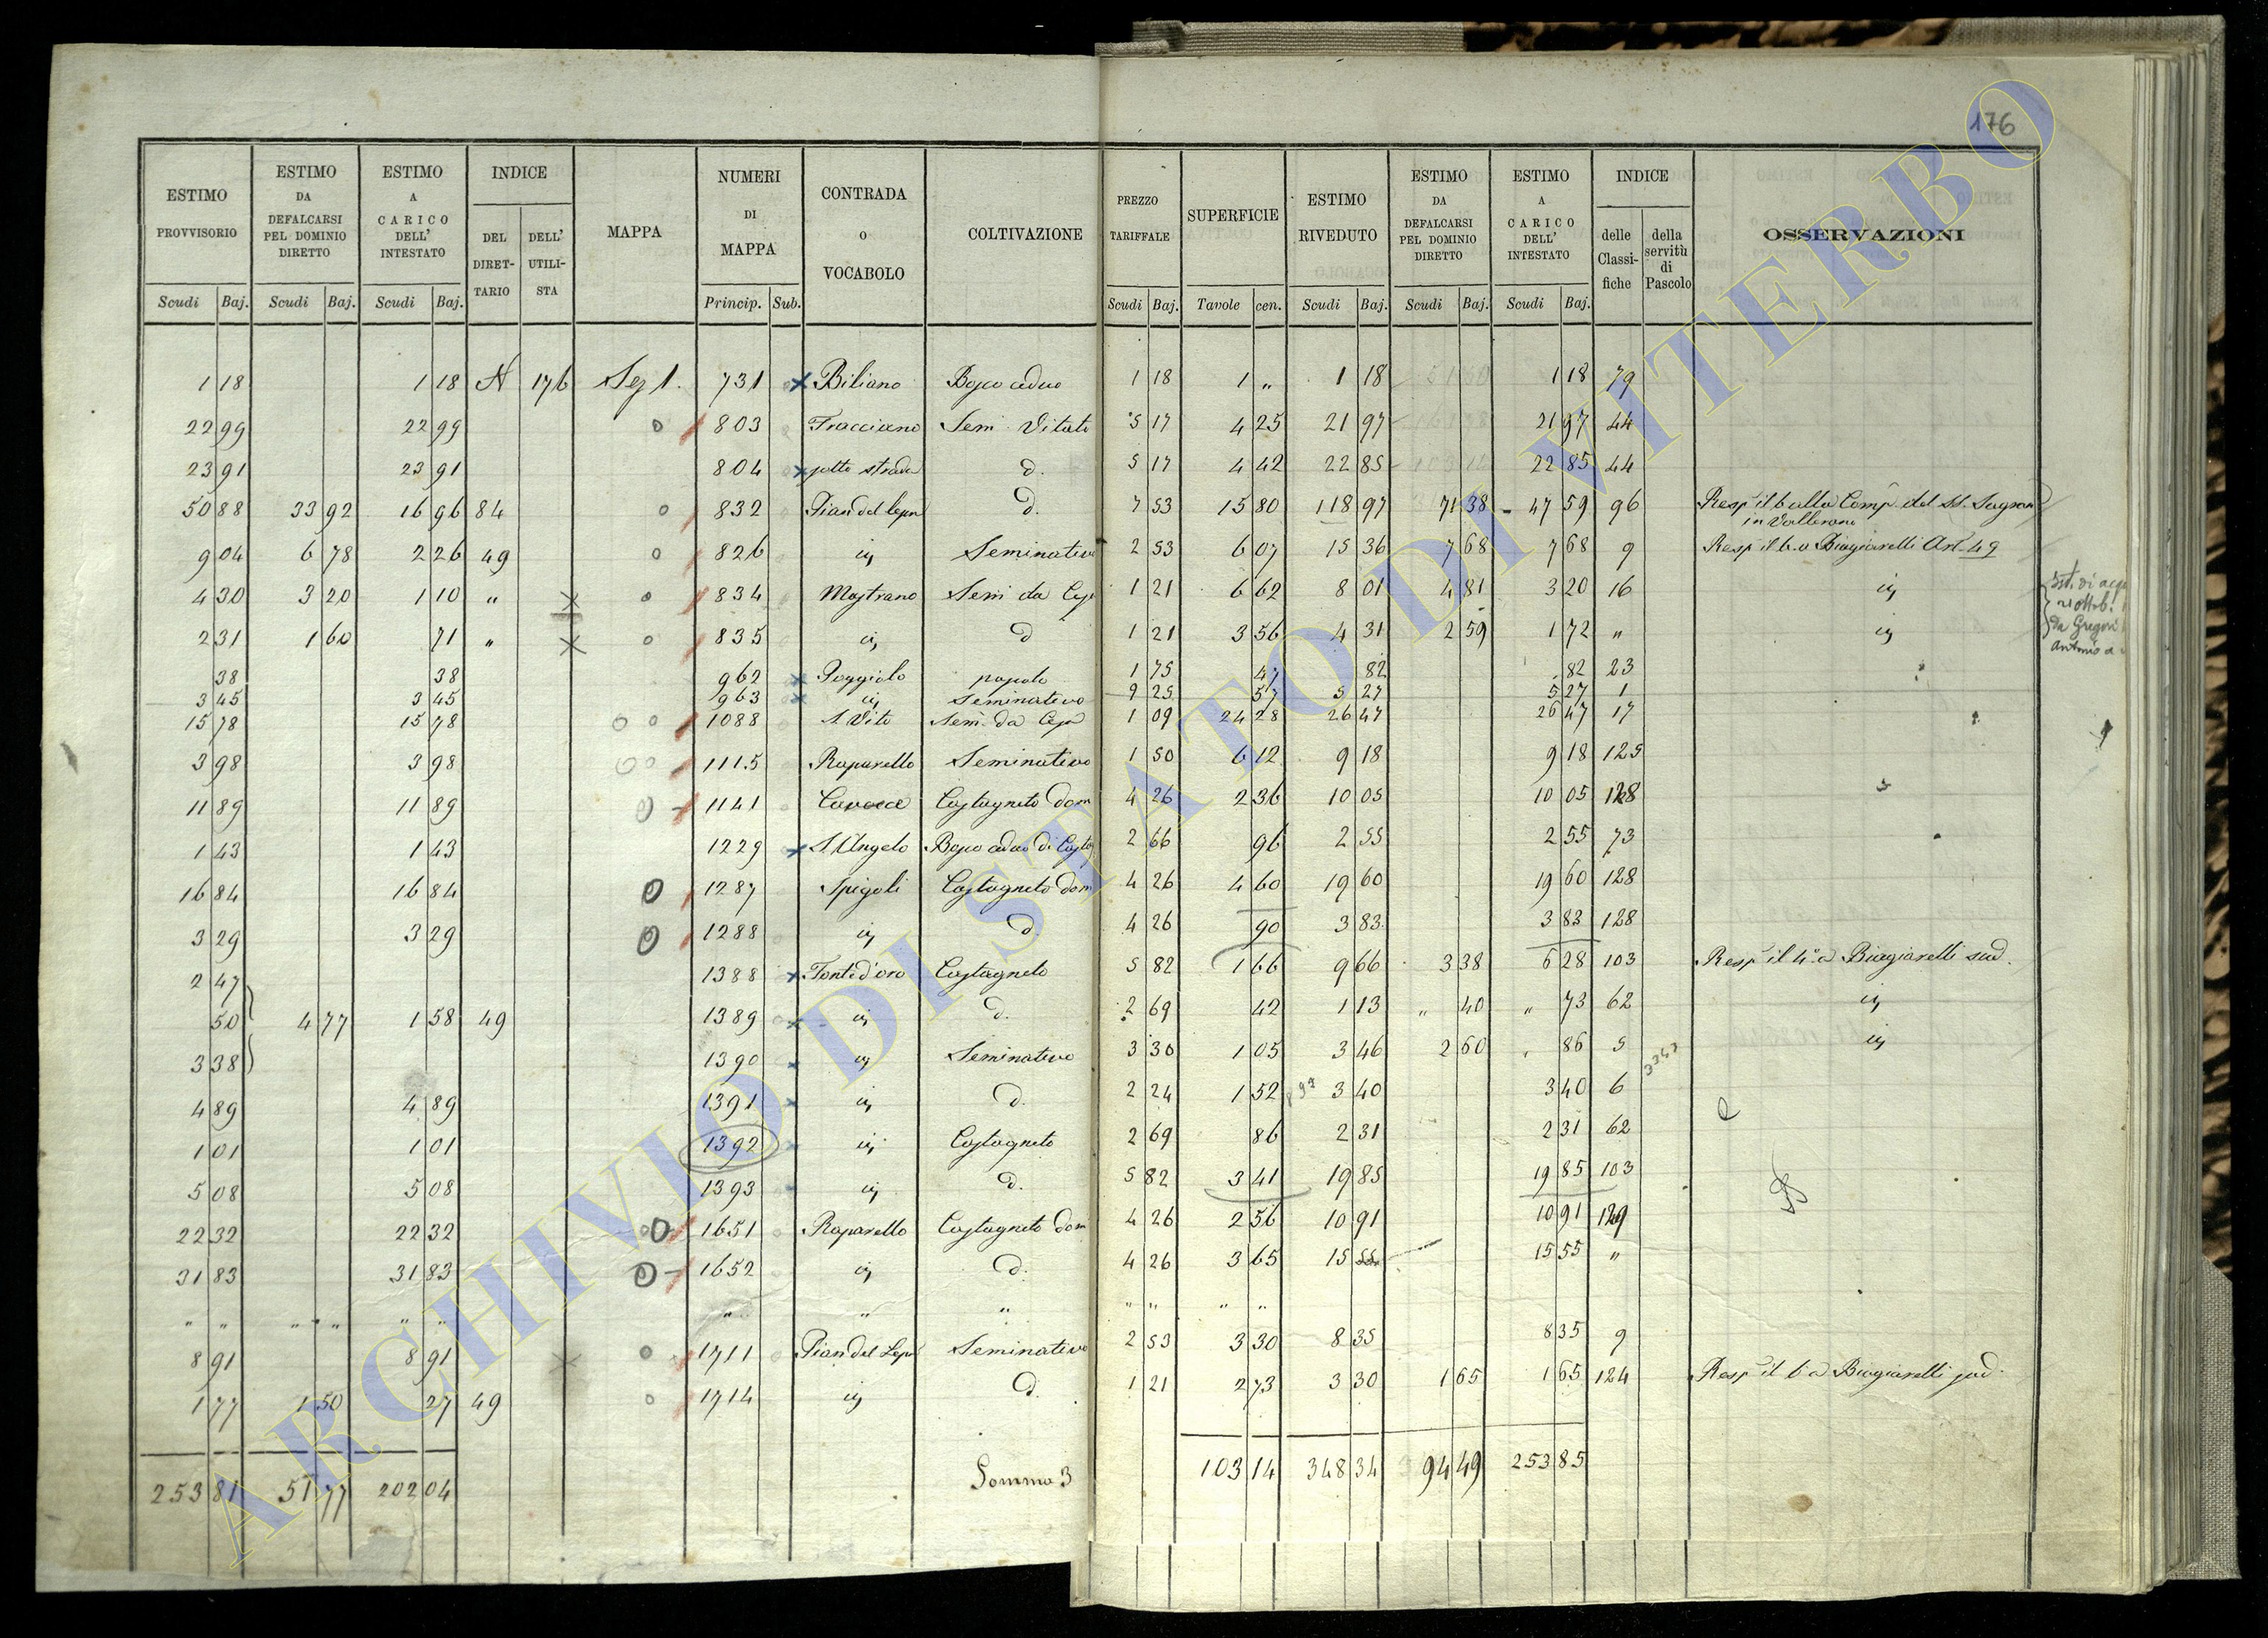 176
ESTIMO PROVVISORIO | ESTIMO DA DEFALCARSI PEL DOMINIO DIRETTO | ESTIMO A CARICO DELL' INTESTATO | INDICE | MAPPA | NUMERI DI MAPPA | CONTRADA O VOCABOLO | COLTIVAZIONE | PREZZO TARIFFALE | SUPERFICIE | ESTIMO RIVEDUTO | ESTIMO DA DEFALCARSI PEL DOMINIO DIRETTO | ESTIMO A CARICO DELL' INTESTATO | INDICE | OSSERVAZIONI
DEL DIRET-TARIO | DELL' UTILI-STA | delle Classi-fiche | della servitù di Pascolo
Scudi | Baj. | Scudi | Baj. | Scudi | Baj. | Princip. | Sub. | Scudi | Baj. | Tavole | cen. | Scudi | Baj. | Scudi | Baj. | Scudi | Baj.
1 18 | 1 18 | N | 176 | Sez 1. | 731 | Biliano | Bosco ceduo | 1 18 | 1 „ | 1 18 | 1 18 | 79
22 99 | 22 99 | 803 | Fracciano | Sem Vitato | 5 17 | 4 25 | 21 97 | 21 97 | 44
23 91 | 23 91 | 804 | sotto strada | d. | 5 17 | 4 42 | 22 85 | 22 85 | 44
50 88 | 33 92 | 16 96 | 84 | 832 | Pian del | d. | 7 53 | 15 80 | 118 97 | 71 38 | 47 59 | 96 | Resp il 6 alla Comp. del SS. Sagram
in Vallerano
9 04 | 6 78 | 2 26 | 49 | 826 | id | Seminativo | 2 53 | 6 07 | 15 36 | 7 68 | 7 68 | 9 | Resp il 6. a Biagiarelli Art. 49
4 30 | 3 20 | 1 10 | „ | 834 | Mostrano | Sem da | 1 21 | 6 62 | 8 01 | 4 81 | 3 20 | 16 | id
2 31 | 1 60 | 71 | „ | 835 | id | d | 1 21 | 3 56 | 4 31 | 2 59 | 1 72 | „ | id
da Gregori
Antonio
38 | 38 | 962 | Poggiolo | pascolo | 1 75 | 47 | 82 | 82 | 23
3 45 | 3 45 | 963 | id | Seminativo | 9 25 | 57 | 5 27 | 5 27 | 1
15 78 | 15 78 | 1088 | S. Vito | Sem. da | 1 09 | 24 28 | 26 47 | 26 47 | 17
3 98 | 3 98 | 1115 | Raparello | Seminativo | 1 50 | 6 12 | 9 18 | 9 18 | 125
11 89 | 11 89 | 1141 | Cavacce | Castagneto dom | 4 26 | 2 36 | 10 05 | 10 05 | 128
1 43 | 1 43 | 1229 | S. Angelo | Bosco ceduo di Casta | 2 66 | 96 | 2 55 | 2 55 | 73
16 84 | 16 84 | 1287 | Spigoli | Castagneto dom | 4 26 | 4 60 | 19 60 | 19 60 | 128
3 29 | 3 29 | 1288 | id | d | 4 26 | 90 | 3 83 | 3 83 | 128
2 47 | 1388 | Fonte d'oro | Castagneto | 5 82 | 1 66 | 9 66 | 3 38 | 6 28 | 103 | Resp il 4. a Biagiarelli sud.
50 | 4 77 | 1 58 | 49 | 1389 | id | d. | 2 69 | 42 | 1 13 | „ 40 | „ 73 | 62 | id
3 38 | 1390 | id | Seminativo | 3 30 | 1 05 | 3 46 | 2 60 | 86 | 5 | id
4 89 | 4 89 | 1391 | id | d. | 2 24 | 1 52 | 3 40 | 3 40 | 6
1 01 | 1 01 | 1392 | id | Castagneto | 2 69 | 86 | 2 31 | 2 31 | 62
5 08 | 5 08 | 1393 | id | d. | 5 82 | 3 41 | 19 85 | 19 85 | 103
22 32 | 22 32 | 1651 | Raparello | Castagneto dom | 4 26 | 2 56 | 10 91 | 10 91 | 129
31 83 | 31 83 | 1652 | id | d. | 4 26 | 3 65 | 15 55 | 15 55 | „
„ „ | „ „ | „ „ | „ | „ | „ | „ „ | „ „
8 91 | 8 91 | 1711 | Pian del | Seminativo | 2 53 | 3 30 | 8 35 | 8 35 | 9
1 77 | 1 50 | 27 | 49 | 1714 | id | d. | 1 21 | 2 73 | 3 30 | 1 65 | 1 65 | 124 | Resp il 6 a Biagiarelli sud.
253 81 | 51 77 | 202 04 | Somma 3 | 103 14 | 348 34 | 94 49 | 253 85
ARCHIVIO DI STATO DI VITERBO